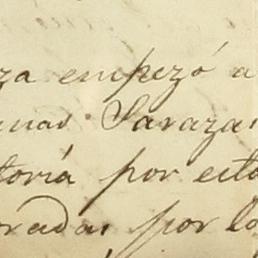 za empezó a
inas Saraza
toria por esto
radas por lo